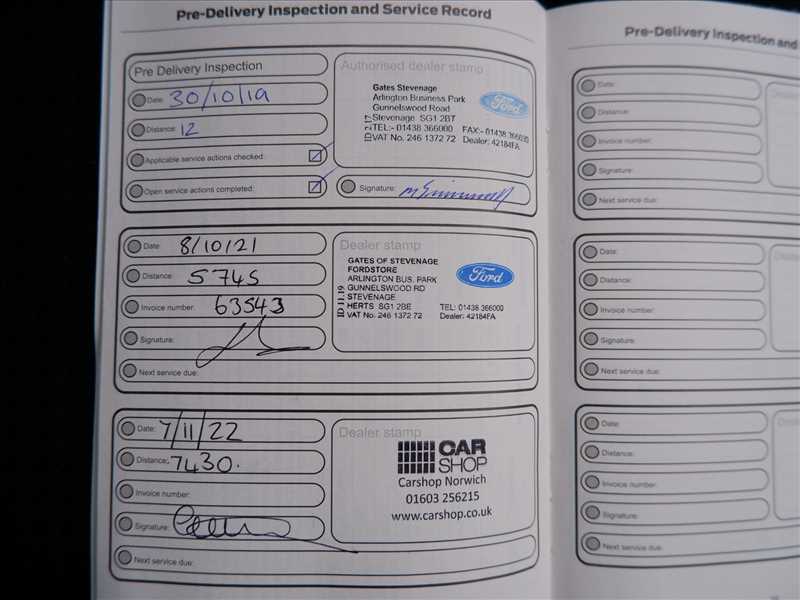 Pre-Delivery Inspection and Service Record
Pre Delivery Inspection
Date: 30/10/19
Distance: 12
Applicable service actions checked:
Open service actions completed:
Authorised dealer stamp
Gates Stevenage
Arlington Business Park
Gunnelswood Road
Stevenage SG1 2BT
TEL:- 01438 366000 FAX:- 01438 366030
VAT No. 246 1372 72 Dealer: 42184FA
Ford
Signature:
Date: 8/10/21
Distance: 5745
Invoice number: 63543
Signature:
Next service due:
Dealer stamp
GATES OF STEVENAGE
FORDSTORE
ARLINGTON BUS. PARK
GUNNELSWOOD RD
STEVENAGE
HERTS SG1 2BE TEL: 01438 366000
VAT No. 246 1372 72 Dealer: 42184FA
ID 11.19
Ford
Date: 7/11/22
Distance: 7430.
Invoice number:
Signature:
Next service due:
Dealer stamp
CAR
SHOP
Carshop Norwich
01603 256215
www.carshop.co.uk
Pre-Delivery Inspection and
Date:
Distance:
Invoice number:
Signature:
Next service due:
Date:
Distance:
Invoice number:
Signature:
Next service due:
Date:
Distance:
Invoice number:
Signature:
Next service due: